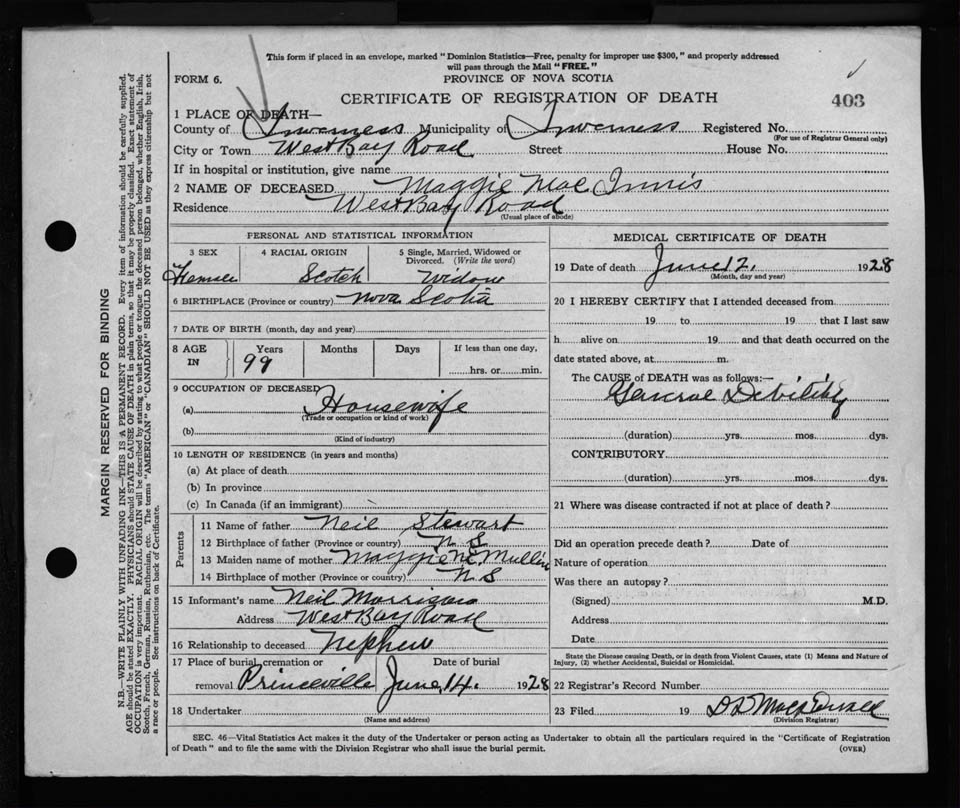 This form if placed in an envelope, marked "Dominion Statistics—Free, penalty for improper use $300," and properly addressed
will pass through the Mail "FREE."
FORM 6.
PROVINCE OF NOVA SCOTIA
CERTIFICATE OF REGISTRATION OF DEATH
403
1 PLACE OF DEATH—
County of Inverness Municipality of Inverness Registered No.
(For use of Registrar General only)
City or Town West Bay Road Street House No.
If in hospital or institution, give name
2 NAME OF DECEASED Maggie Mac Innis
Residence West Bay Road
(Usual place of abode)
PERSONAL AND STATISTICAL INFORMATION
3 SEX 4 RACIAL ORIGIN 5 Single, Married, Widowed or
Divorced. (Write the word)
Female Scotch Widow
6 BIRTHPLACE (Province or country) Nova Scotia
7 DATE OF BIRTH (month, day and year)
8 AGE IN Years Months Days If less than one day,
99 hrs. or min.
9 OCCUPATION OF DECEASED
(a) Housewife
(Trade or occupation or kind of work)
(b)
(Kind of industry)
10 LENGTH OF RESIDENCE (in years and months)
(a) At place of death
(b) In province
(c) In Canada (if an immigrant)
Parents
11 Name of father Neil Stewart
12 Birthplace of father (Province or country) N.S
13 Maiden name of mother Maggie Mc Mullin
14 Birthplace of mother (Province or country) N S
15 Informant's name Neil Morrison
Address West Bay Road
16 Relationship to deceased Nephew
17 Place of burial, cremation or Date of burial
removal Princeville June, 14. 1928
18 Undertaker
(Name and address)
MEDICAL CERTIFICATE OF DEATH
19 Date of death June 12, 1928
(Month, day and year)
20 I HEREBY CERTIFY that I attended deceased from
19 to 19 that I last saw
h alive on 19 and that death occurred on the
date stated above, at m.
The CAUSE of DEATH was as follows:—
General Debility
(duration) yrs. mos. dys.
CONTRIBUTORY
(duration) yrs. mos. dys.
21 Where was disease contracted if not at place of death?
Did an operation precede death? Date of
Nature of operation
Was there an autopsy?
(Signed) M.D.
Address
Date
State the Disease causing Death, or in death from Violent Causes, state (1) Means and Nature of
Injury, (2) whether Accidental, Suicidal or Homicidal.
22 Registrar's Record Number
23 Filed 19
(Division Registrar)
SEC. 46—Vital Statistics Act makes it the duty of the Undertaker or person acting as Undertaker to obtain all the particulars required in the "Certificate of Registration
of Death" and to file the same with the Division Registrar who shall issue the burial permit.
(OVER)
MARGIN RESERVED FOR BINDING
N.B.—WRITE PLAINLY WITH UNFADING INK—THIS IS A PERMANENT RECORD. Every item of information should be carefully supplied.
AGE should be stated EXACTLY. PHYSICIANS should STATE CAUSE OF DEATH in plain terms, so that it may be properly classified. Exact statement of
OCCUPATION is very important. RACIAL ORIGIN will be described by stating to what people or tongue the deceased person belonged, whether English, Irish,
Scotch, French, German, Russian, Ruthenian, etc. The terms "AMERICAN" or "CANADIAN" SHOULD NOT BE USED as they express citizenship but not
a race or people. See instructions on back of Certificate.